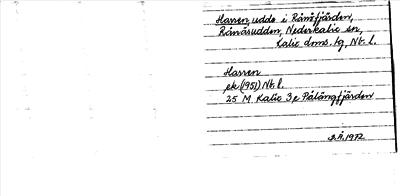 Harren, udde i Rånefjärden,
Rånäsudden, Nederkalix sn,
Kalix dms. tg, Nb. l.
Harren
ek (1951) Nb l.
25 M Kalix 3 e Pålängfjärden
1972